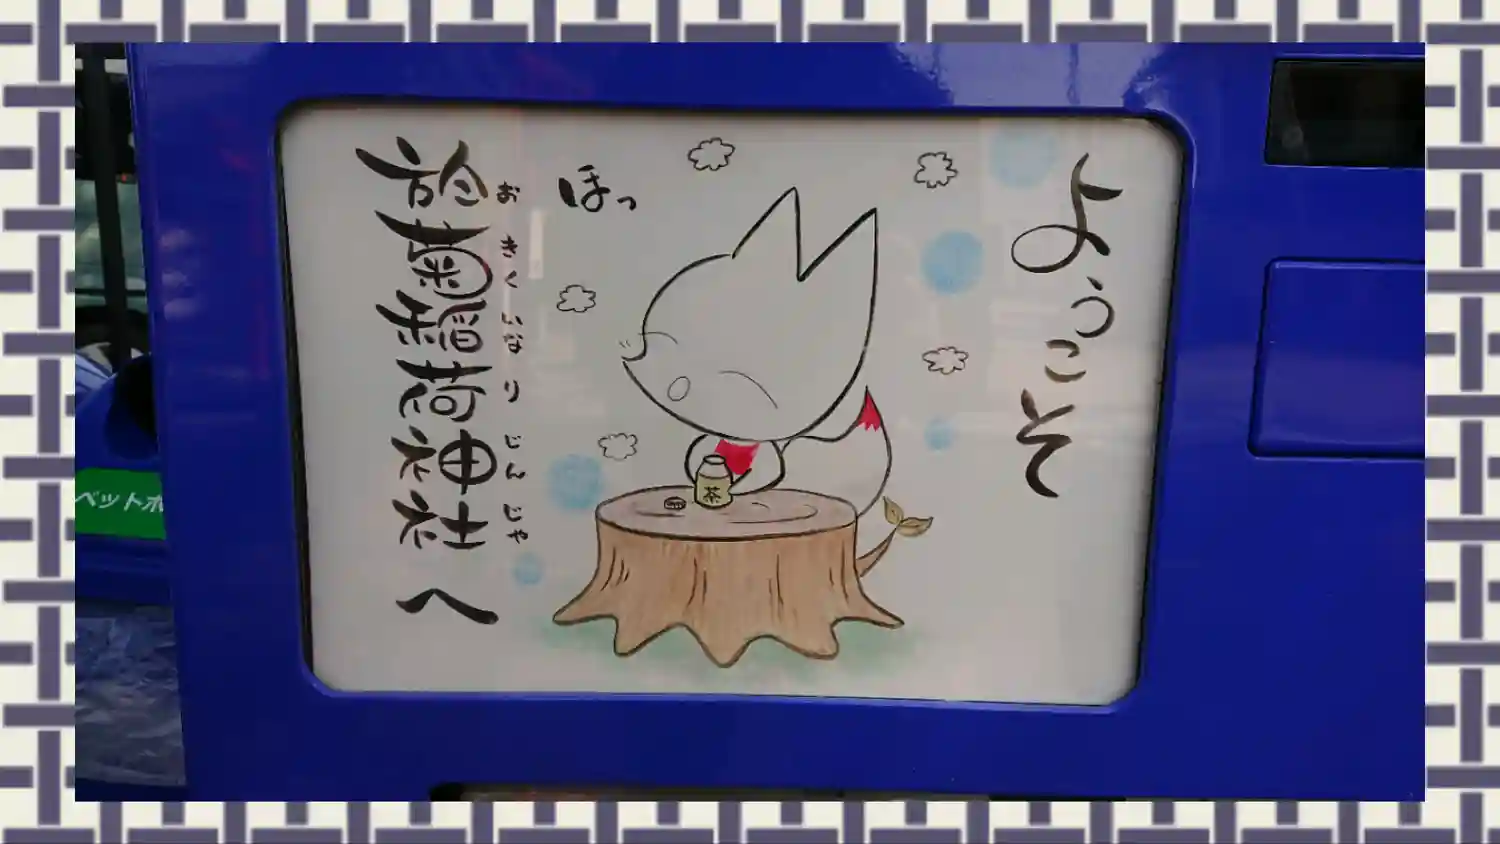 ようこそ
ほっ
おきくいなりじんじゃ
於菊稲荷神社へ
茶
ペットボ